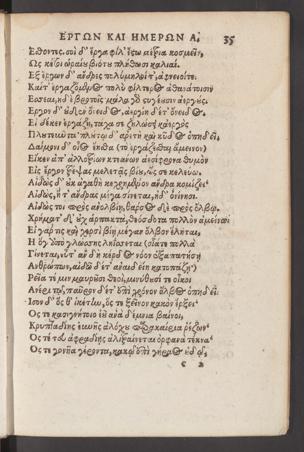 ΕΡΓΩΝ ΚΑΙ ΗΜΕΡΩΝ Α. 35
Ἔσθοντες. σοὶ δ' ἔργα φίλ' ἔστω μέτρια κοσμεῖν,
Ὥς κέ τοι ὡραίου βιότου πλήθωσι καλιαί.
Ἐξ ἔργων δ' ἄνδρες πολύμηλοί τ', ἀφνειοί τε.
Καί τ' ἐργαζόμενος πολὺ φίλτερος ἀθανάτοισιν
Ἔσσεαι, ἠδὲ βροτοῖς· μάλα γὰρ στυγέουσιν ἀεργούς.
Ἔργον δ' οὐδὲν ὄνειδος, ἀεργίη δέ τ' ὄνειδος.
Εἰ δέ κεν ἐργάζῃ, τάχα σε ζηλώσει ἀεργὸς
Πλουτεῦντα· πλούτῳ δ' ἀρετὴ καὶ κῦδος ὀπηδεῖ.
Δαίμονι δ' οἷος ἔησθα (τὸ ἐργάζεσθαι ἄμεινον)
Εἴ κεν ἀπ' ἀλλοτρίων κτεάνων ἀεσίφρονα θυμὸν
Εἰς ἔργον τρέψας μελετᾷς βίου, ὥς σε κελεύω.
Αἰδὼς δ' οὐκ ἀγαθὴ κεχρημένον ἄνδρα κομίζει·
Αἰδὼς, ἥ τ' ἄνδρας μέγα σίνεται, ἠδ' ὀνίνησι.
Αἰδώς τοι πρὸς ἀνολβίῃ, θάρσος δὲ πρὸς ὄλβῳ.
Χρήματα δ' οὐχ ἁρπακτά, θεόσδοτα πολλὸν ἀμείνω·
Εἰ γάρ τις καὶ χερσὶ βίῃ μέγαν ὄλβον ἕληται,
Ἢ ὅγ' ἀπὸ γλώσσης ληΐσεται (οἷά τε πολλὰ
Γίνεται, εὖτ' ἂν δὴ κέρδος νόον ἐξαπατήσῃ
Ἀνθρώπων, αἰδῶ δέ τ' ἀναιδείη κατοπάζῃ·)
Ῥεῖά τέ μιν μαυροῦσι θεοί, μινύθουσι δὲ οἶκοι
Ἀνέρι τῷ, παῦρον δέ τ' ἐπὶ χρόνον ὄλβος ὀπηδεῖ.
Ἶσον δ' ὅς θ' ἱκέτην, ὅς τε ξεῖνον κακὸν ἔρξει·
Ὅς τε κασιγνήτοιο ἑοῦ ἀνὰ δέμνια βαίνοι,
Κρυπταδίης εὐνῆς ἀλόχου παρακαίρια ῥέζων·
Ὅς τέ τευ ἀφραδίῃς ἀλιταίνεται ὀρφανὰ τέκνα·
Ὅς τε γονῆα γέροντα, κακῷ ἐπὶ γήραος οὐδῷ,
ε 2